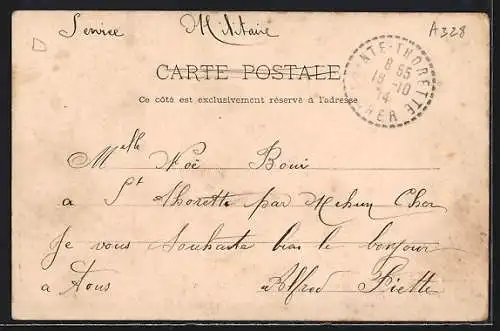 Service Militaire
A328
SAINTE-THORETTE
8 55
18 -10
14
CHER
CARTE POSTALE
Ce côté est exclusivement réservé à l'adresse
Melle Noë Boui
a St Thorette par Mehun Cher
Je vous souhaite bien le bonjour
a tous Alfred Piette